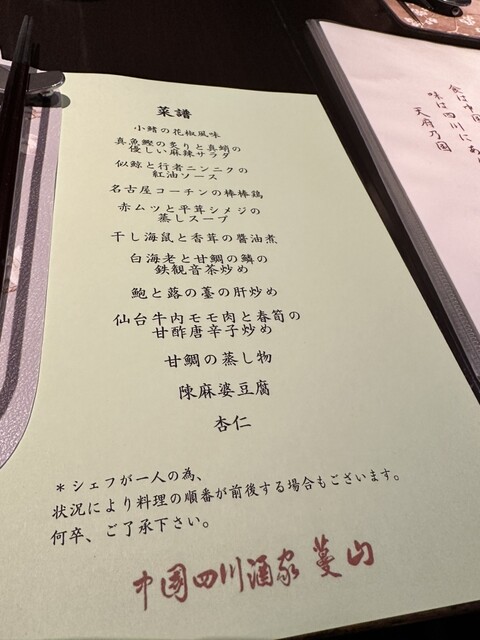 菜譜
小鰭の花椒風味
真魚鰹の炙りと真蛸の
優しい麻辣サラダ
似鯨と行者ニンニクの
紅油ソース
名古屋コーチンの棒棒鶏
赤ムツと平茸シメジの
蒸しスープ
干し海鼠と香茸の醬油煮
白海老と甘鯛の鱗の
鉄観音茶炒め
鮑と蕗の薹の肝炒め
仙台牛内モモ肉と春筍の
甘酢唐辛子炒め
甘鯛の蒸し物
陳麻婆豆腐
杏仁
*シェフが一人の為、
状況により料理の順番が前後する場合もございます。
何卒、ご了承下さい。
中國四川酒家 蔓山
食は中国
味は四川にあ
天府乃国